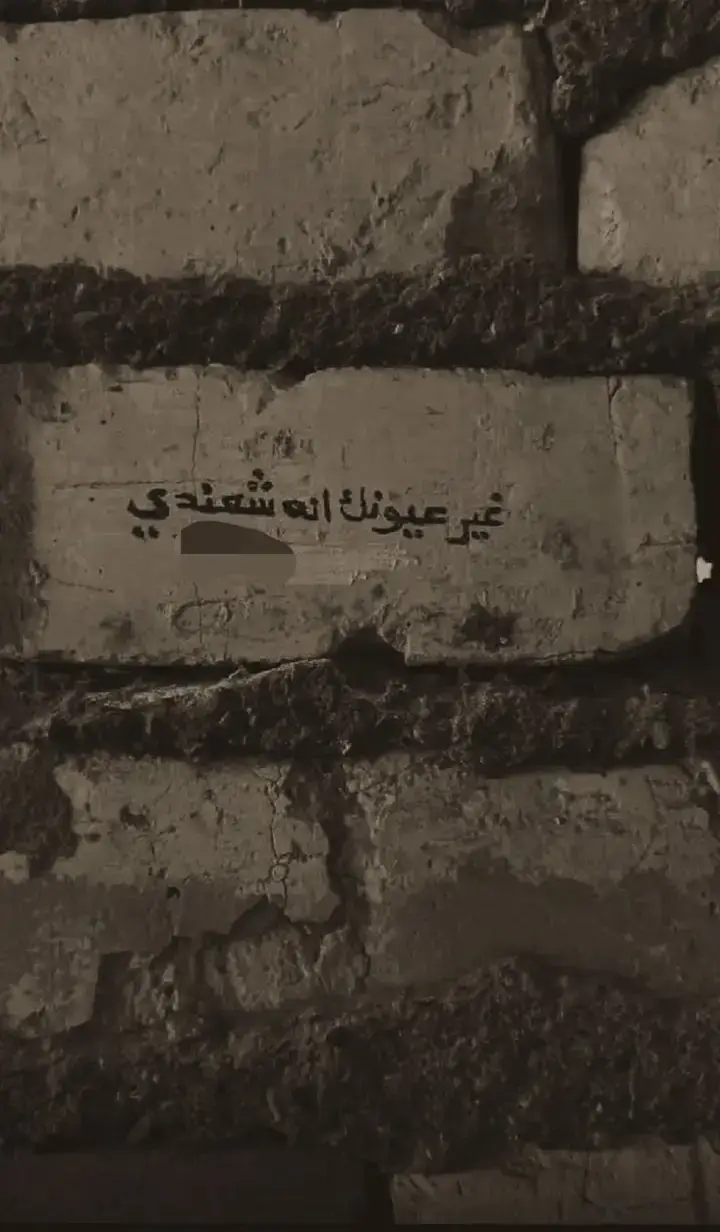 غير عيونك انه شعندي